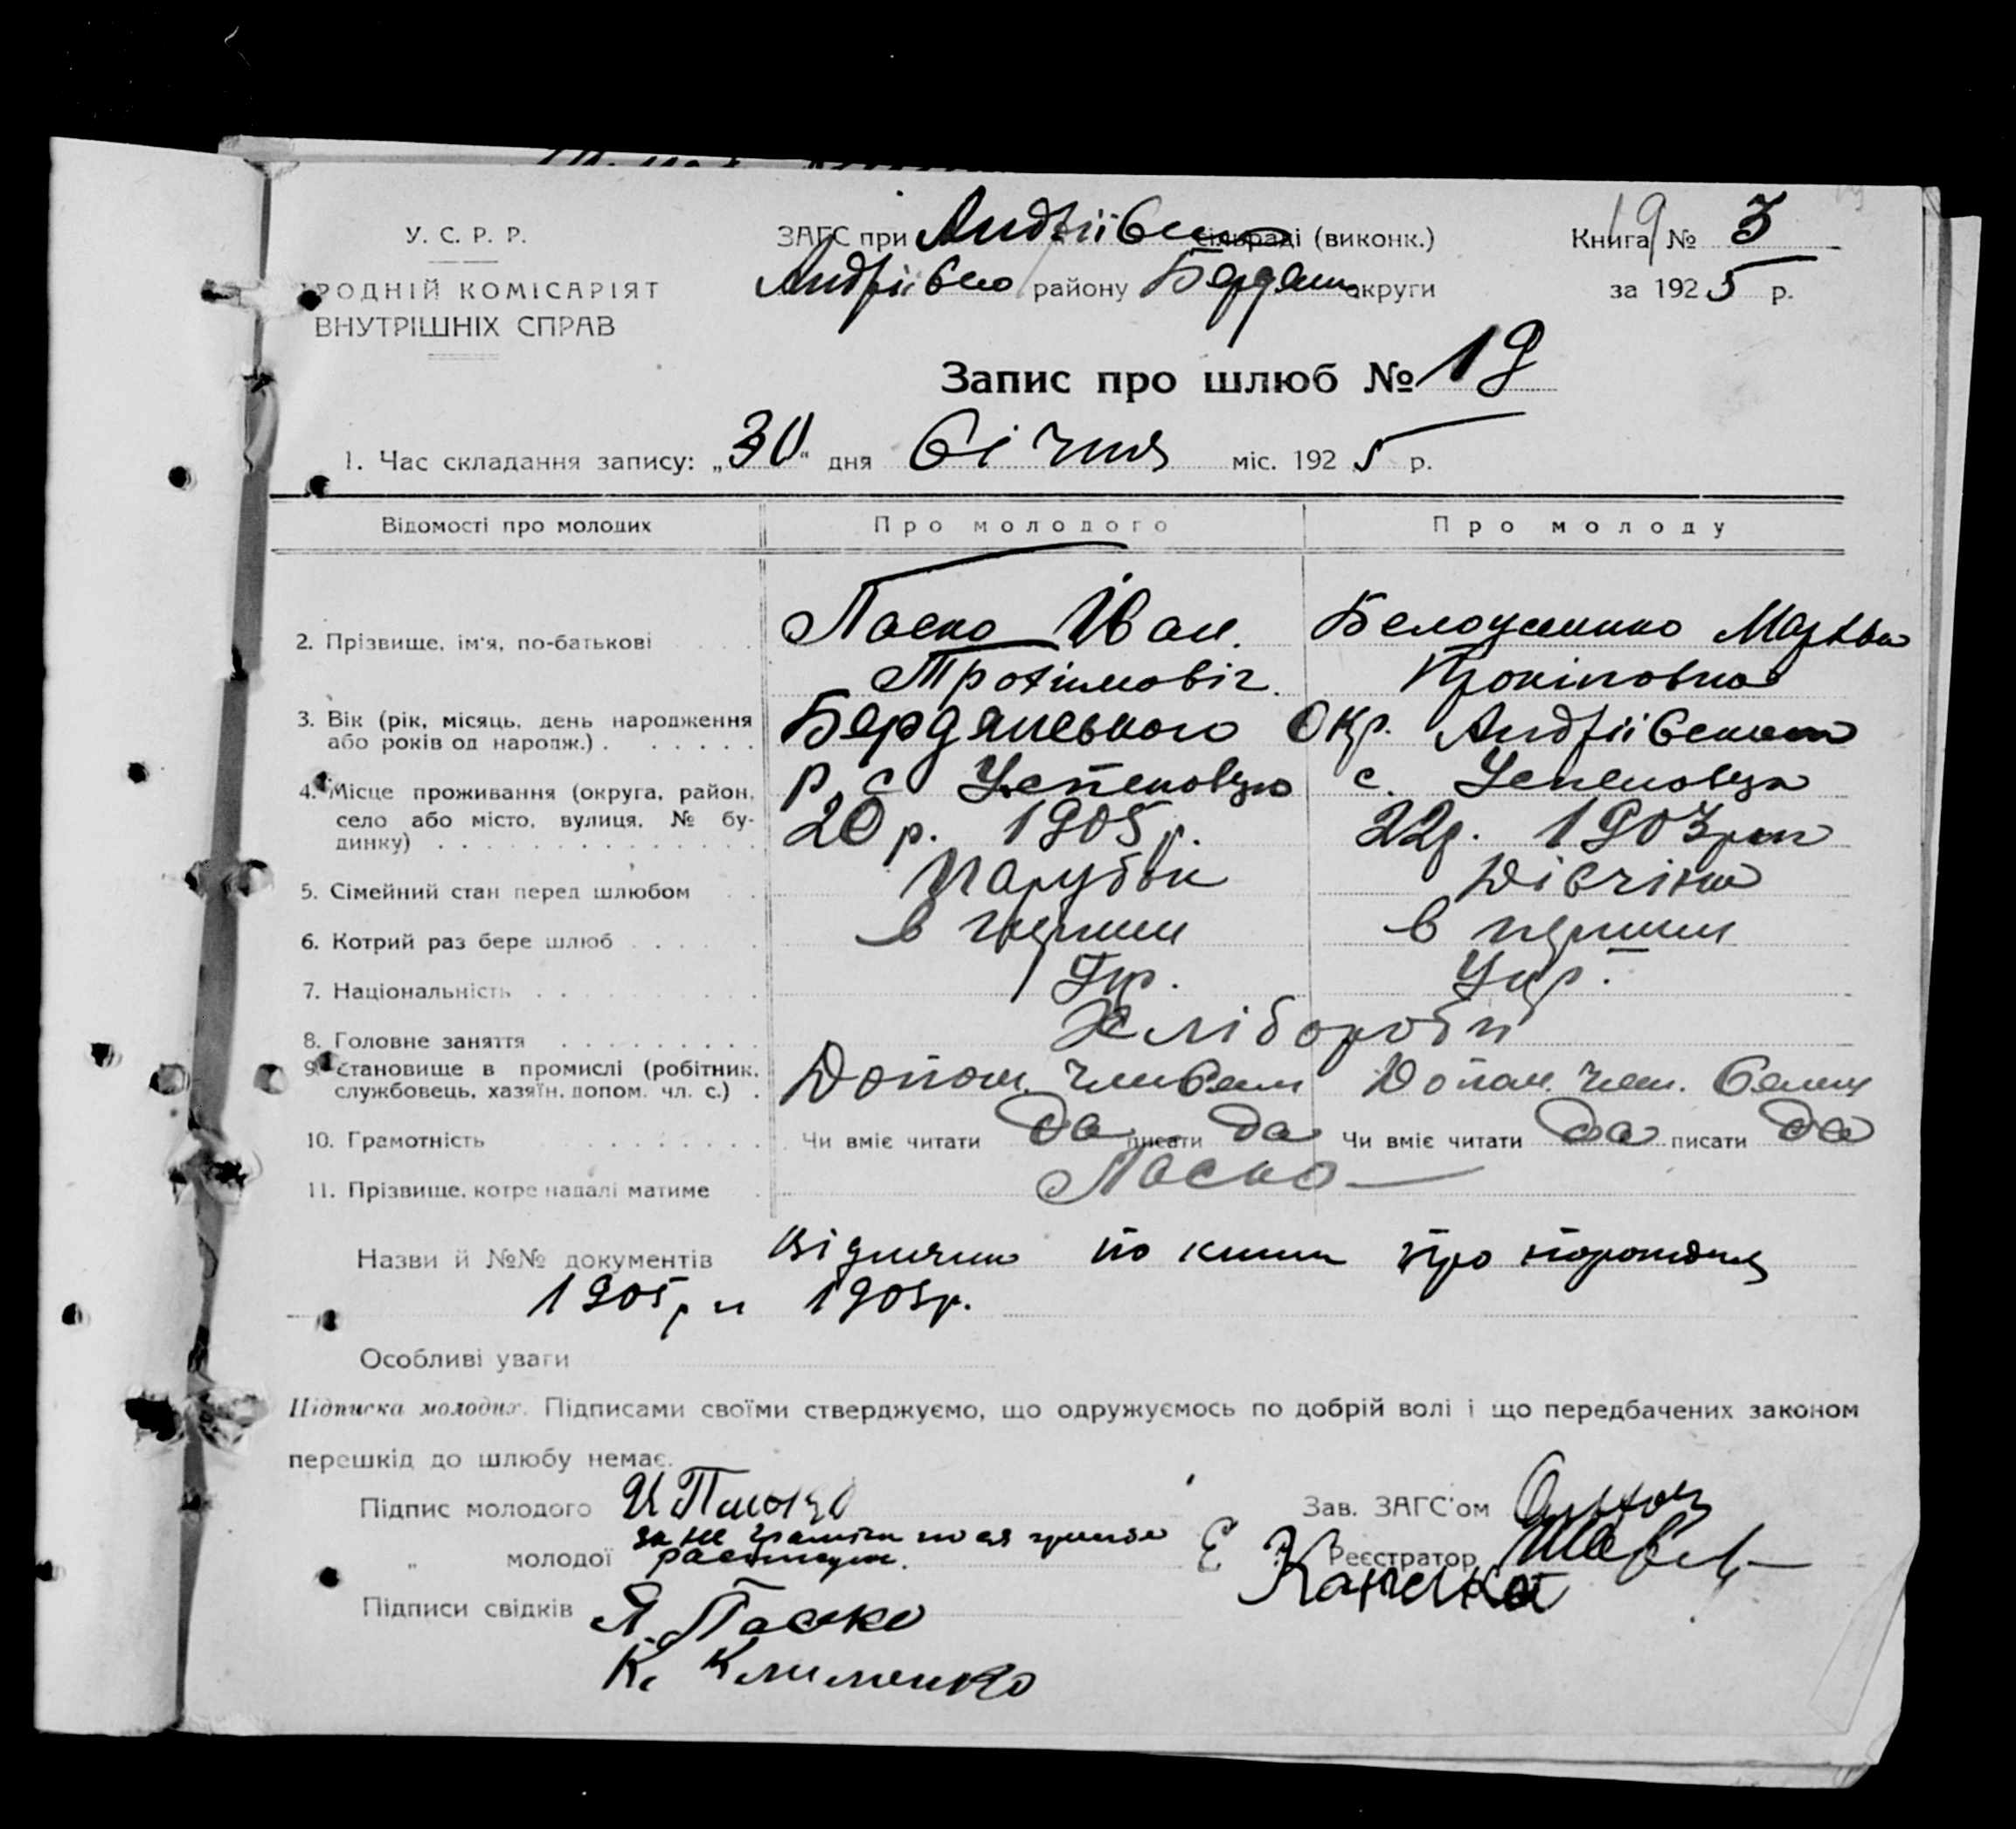 У. С. Р. Р.
РОДНІЙ КОМІСАРІЯТ
ВНУТРІШНІХ СПРАВ
ЗАГС при Андріївсько сільраді (виконк.)
Андріївсько району Бердян округи
Книга № 3
19
за 1925 р.
Запис про шлюб № 19
1. Час складання запису: „30" дня Січня міс. 1925 р.
Відомості про молодих Про молодого Про молоду
2. Прізвище, ім'я, по-батькові Паско Іван
Трохімовіч
3. Вік (рік, місяць, день народження Бердянського Окр. Андріївського
або років од народж.)
4. Місце проживання (округа, район, р. с. Успеновцю с. Успеновца
село або місто, вулиця, № бу- 20 р. 1905 р. 22 р. 1903
динку)
5. Сімейний стан перед шлюбом Парубок Дівчіна
6. Котрий раз бере шлюб в перший в перший
7. Національність Укр. Укр.
8. Головне заняття Хлібороби
9. Становище в промислі (робітник, Допом. член Допом. член.
службовець, хазяїн, допом. чл. с.)
10. Грамотність Чи вміє читати да писати да Чи вміє читати да писати да
11. Прізвище, котре надалі матиме Паско
Назви й №№ документів по книги про
1905 р и 1903 р.
Особливі уваги
Підписка молодих. Підписами своїми стверджуємо, що одружуємось по добрій волі і що передбачених законом
перешкід до шлюбу немає.
Підпис молодого И Пасько
„ молодої за не
Підписи свідків Я. Паско
К. Клименко
Зав. ЗАГС'ом
Реєстратор